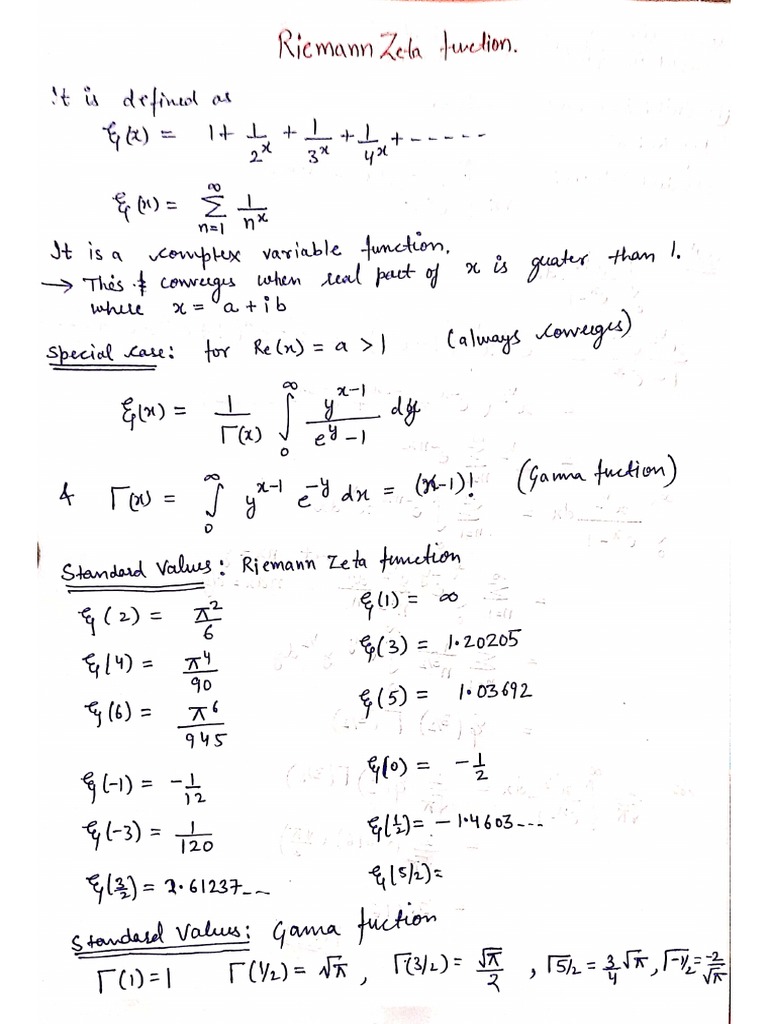 Riemann Zeta function.
It is defined as
ξ(x) = 1 + 1/2^x + 1/3^x + 1/4^x + - - - - -
ξ(x) = Σ_{n=1}^{∞} 1/n^x
It is a complex variable function.
→ This converges when real part of x is greater than 1.
where x = a + ib
Special case: for Re(x) = a > 1 (always converges)
ξ(x) = 1/Γ(x) ∫_0^∞ y^{x-1}/(e^y - 1) dy
& Γ(x) = ∫_0^∞ y^{x-1} e^{-y} dx = (x-1)! (Gama fuction)
Standard Values: Riemann Zeta function
ξ(2) = π^2/6 ξ(1) = ∞
ξ(4) = π^4/90 ξ(3) = 1.20205
ξ(6) = π^6/945 ξ(5) = 1.03692
ξ(-1) = -1/12 ξ(0) = -1/2
ξ(-3) = 1/120 ξ(1/2) = -1.4603---
ξ(3/2) = 2.61237-- ξ(5/2) =
Standard Values: Gama fuction
Γ(1) = 1 Γ(1/2) = √π , Γ(3/2) = √π/2 , Γ5/2 = 3/4 √π , Γ-1/2 = -2/√π